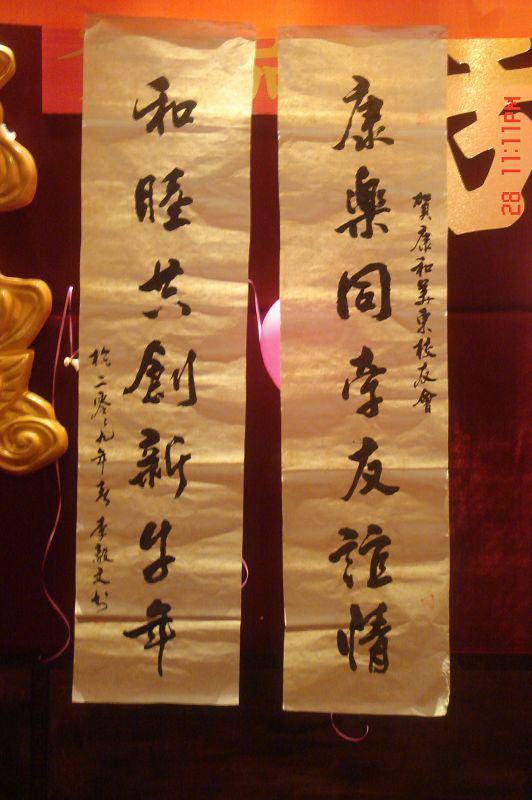 賀康和美東校友會
康樂同牽友誼情
和睦共創新牛年
於二零〻九年春 李毅文书
28 11:11AM